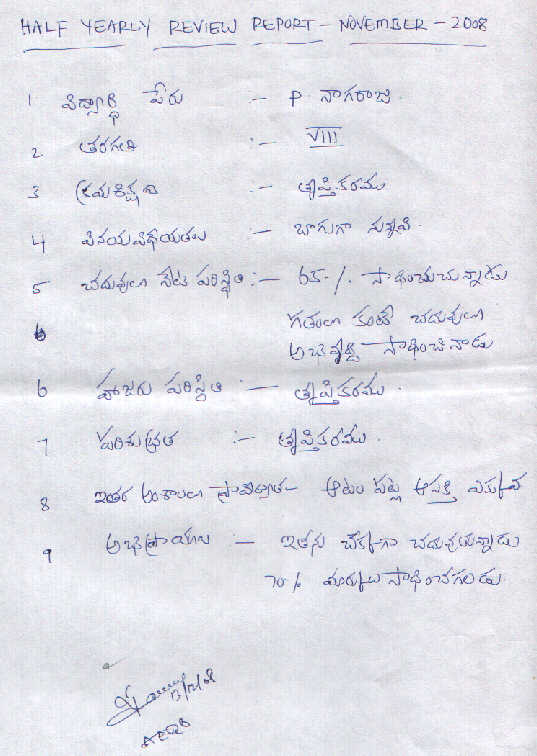 HALF YEARLY REVIEW REPORT - NOVEMBER - 2008
1 విద్యార్థి పేరు :- P. నాగరాజు.
2 తరగతి :- VIII
3 క్రమశిక్షణ :- తృప్తికరము
4 వినయవిధేయతలు :- బాగుగా నున్నవి.
5 చదువులో నేటి పరిస్థితి :- 65 -/. సాధించుచున్నాడు
గతంలో కంటే చదువులో
6 అభివృద్ధి సాధించినాడు
6 హాజరు పరిస్థితి :- తృప్తికరము.
7 పరిశుభ్రత :- తృప్తికరము.
8 ఇతర అంశాలలో ప్రావీణ్యత - ఆటల పట్ల ఆసక్తి ఎక్కువ
9 అభిప్రాయం - ఇతను చక్కగా చదువుచున్నాడు
70 % మార్కులు సాధించగలడు.